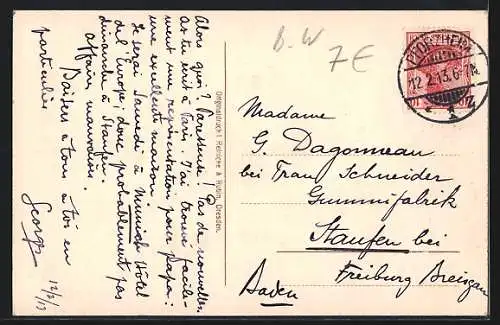 Alors quoi? Paresseuse! Pas de nouvelles.
as tu écrit à Paris. J'ai trouvé facile-
ment une représentation pour papa:
une excellente maison.
Je serai Samedi à Munich Hôtel
de l'Europe; donc probablement pas
dimanche à Staufen.
affaire mauvaises.
Baisers à tous à toi en
particulier
Georges
12/2/13
Originaldruck: Reinicke & Rubin, Dresden.
B.W
7€
PFORZHEIM
12.2.13.6-7N.
1 Z
Madame
G. Dagonneau
bei Frau Schneider
Gummifabrik
Staufen bei
Freiburg Breisgau
Baden